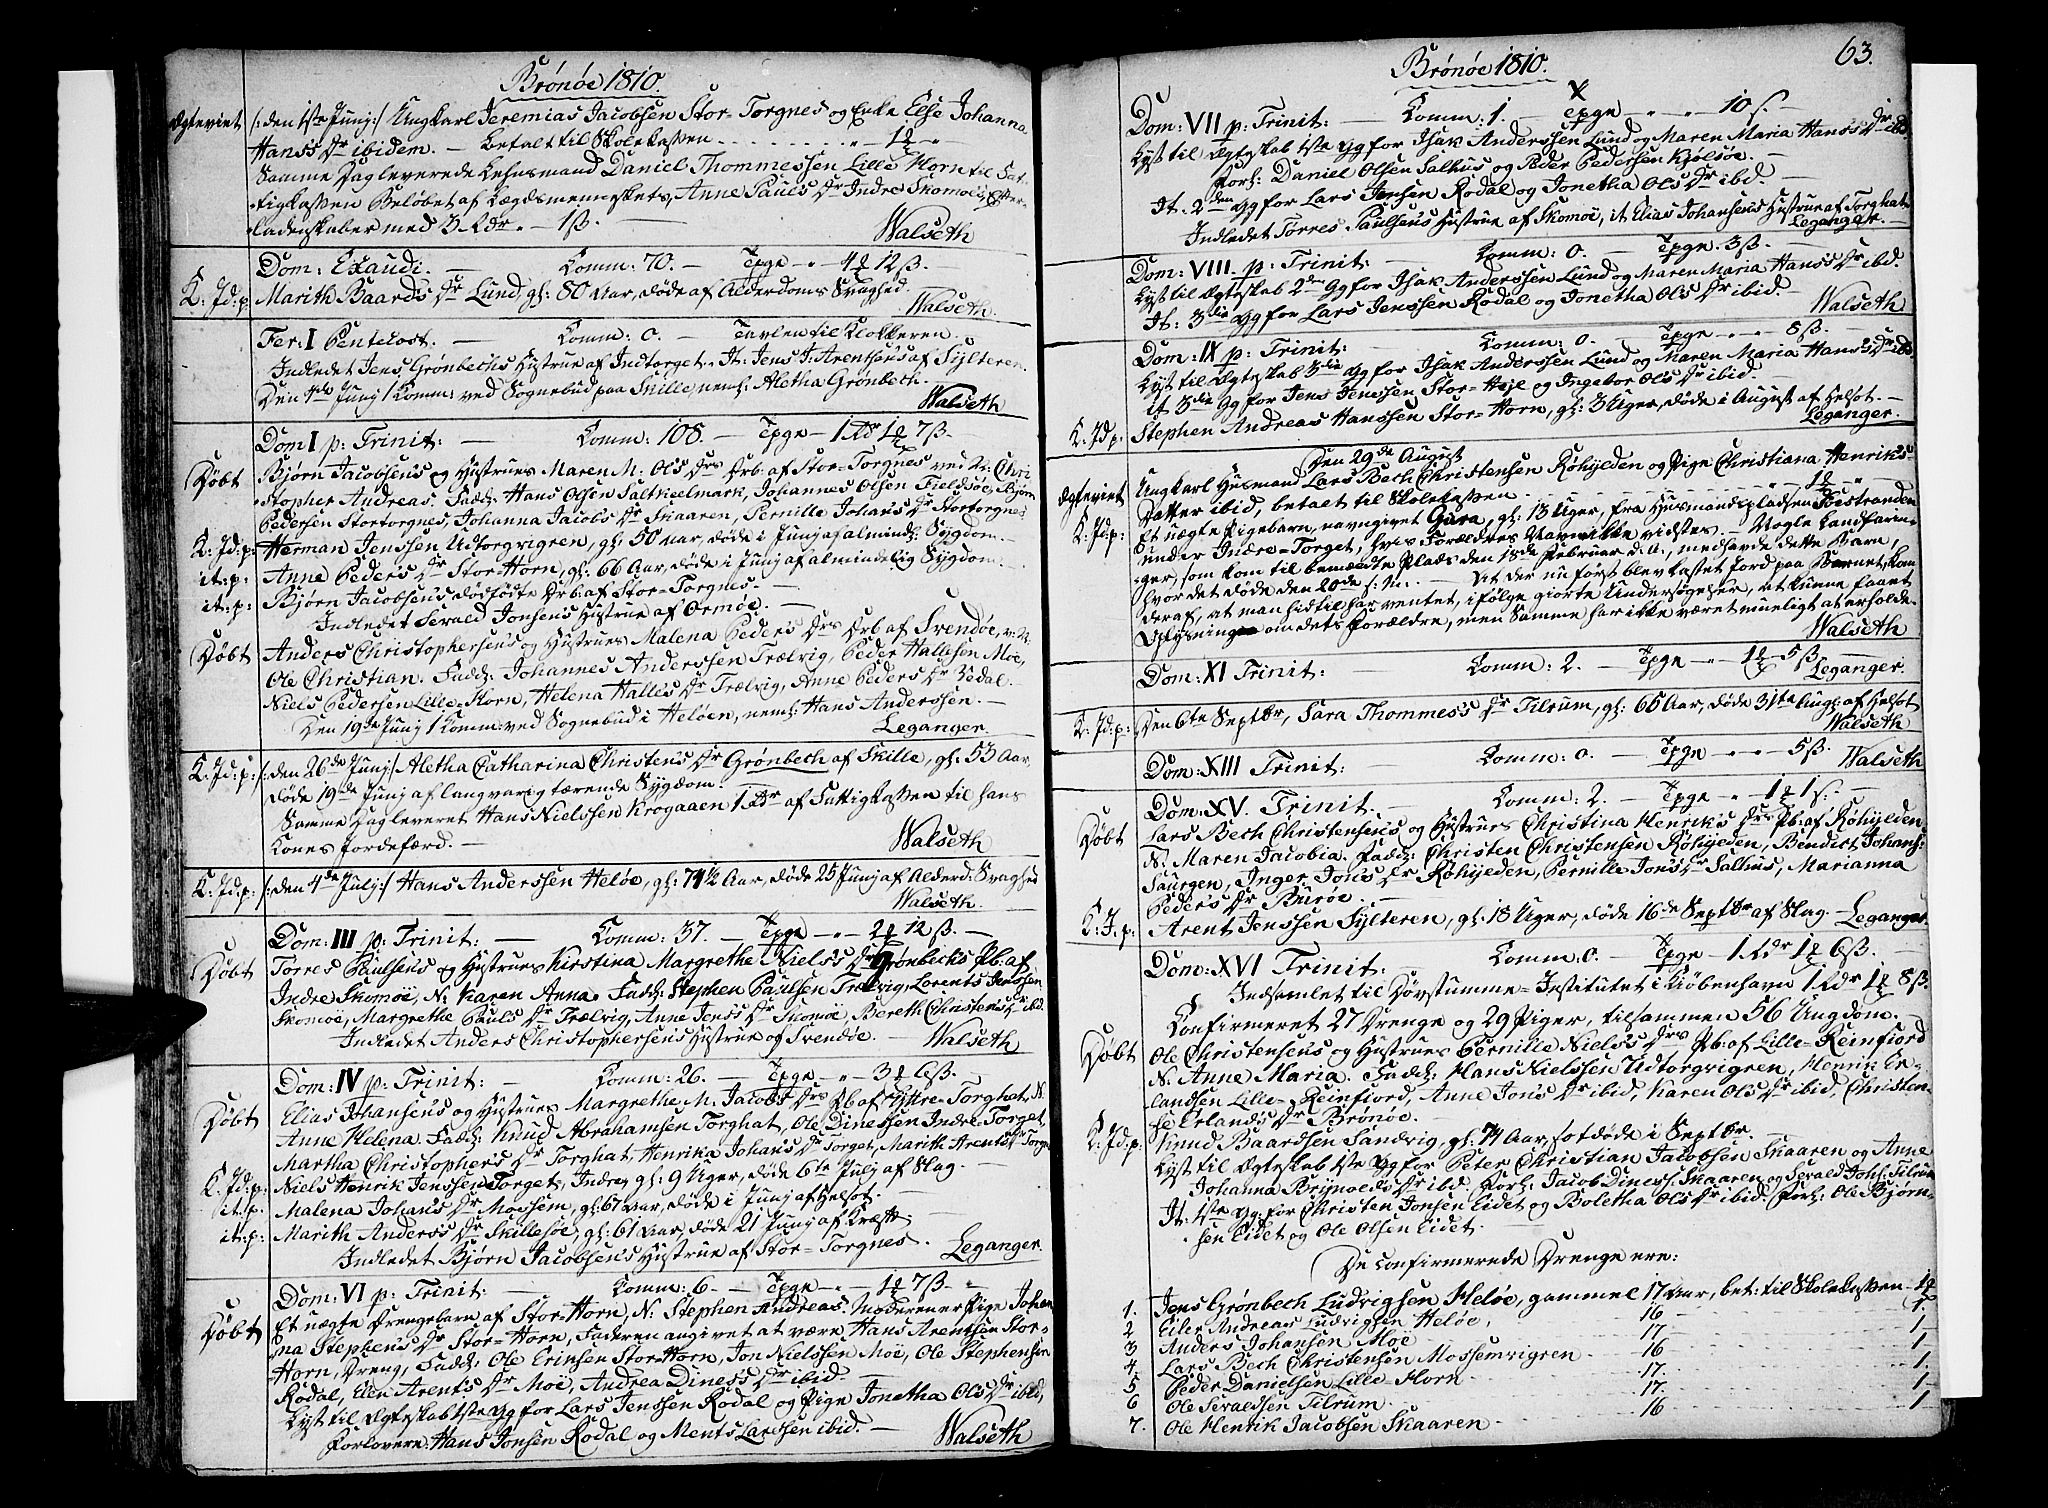 Brönöe 1810.
Ægteviet /: den 1ste Junj :/ Ungkarl Jeremias Jacobsen Stor-Torgnes og Enke Else Johanna
Hans's Dr ibidem. — betalt til Skolekassen
Samme Dag leverede Lehnsmand Daniel Thommessen Lille Horn til Fat-
tigkassen Beløbet af Lægdsmennesket, Anne Pauls Dr Indre Skomoe Efter-
ladenskaber med 3 Rdr. - 1ß. —
Walseth
Dom: Exaudi. — Comm: 70. — Tvge - " - 4 12ß.
K: Jd: p: Marith Baards Dr Lund, gl: 80 Aar, døde af Alderdoms Svaghed.
Walseth.
Fer: I Pentecost. — Comm: 0. — Tavlen til Klokkeren. —
Indledet Jens Grønbechs Hustrue af Indtorget. It: Jens J: Arentsens af Sylteren.
Den 4de Junj 1 Comm: ved Sognebud paa Skille, neml: Aletha Grønbech.
Walseth
Dom I p: Trinit: — Comm: 108. — Tvge - 1 Rdr 1 7ß. —
Døbt Bjørn Jacobsens og Hustrues Maren M: Ols Drs Drb: af Stor-Torgnes ved N: Chri-
stopher Andreas. Fadd: Hans Olsen Saltkeelmark, Johannes Olsen Fieldsøe, Bjørn
Pedersen Stortorgnes, Johanna Jacobs Dr Skaaren, Pernille Johans Dr Stortorgnes.
K: Jd: p: Herman Jenssen Udtorgvigren, gl: 50 Aar, døde i Junj af almindl: Sygdom. —
it: p: Anne Peders Dr Stor-Horn, gl: 66 Aar, døde i Junj af almindelig Sygdom.
it: p: Bjørn Jacobsens dødfødte Drb: af Stor-Torgnes. —
Indledet Serald Jonsens Hustrue af Ormøe. —
Døbt Anders Christophersens og Hustrues Malena Peders Drs Drb: af Svendøe, v: N:
Ole Christian. Fadd: Johannes Anderssen Trælvig, Peder Hallesen Moe,
Niels Pedersen Lille-Horn, Helena Halles Dr Trælvig, Anne Peders Dr Vedal.
Den 19de Junj 1 Comm: ved Sognebud i Heløen, neml: Hans Anderssen. —
Leganger.
K: Jd: p: /: den 26de Junj :/ Aletha Catharina Christens Dr Grønbech af Skille, gl: 53 Aar
døde 19de Junj af langvarig tærende Sygdom. —
Samme Dag leveret Hans Nielssen Krogaaen 1 Rdr af Fattigkassen til hans
Kones Jordefærd. —
Walseth
K: Jd: p: /: den 4de Julj :/ Hans Anderssen Heløe, gl: 74½ Aar, døde 25 Junj af Alderd: Svaghed
Walseth.
Dom: III p: Trinit: — Comm: 37. — Tvge - " - 2 12ß. —
Døbt Torres Paulsens og Hustrues Kirstina Margrethe Niels's Dr Grønbechs Pb: af
Indre Skomoe, N: Karen Anna. Fadd: Stephen Paulsen Trælvig, Lorents Jenssen
Skomoe, Margrethe Pauls Dr Trælvig, Anne Jens's Dr Skomoe, Bereth Christens Dr ibd.
Indledet Anders Christophersens Hustrue og Svendøe. —
Walseth
Dom: IV p: Trinit: — Comm: 26. — Tvge - " - 3 6ß. —
Døbt Elias Johansens og Hustrues Margrethe M: Jacobs Drs Pb: af Yttre-Torghat, N:
Anne Helena. Fadd: Knud Abrahamsen Torghat, Ole Dinessen Indre Torget,
Martha Christophers Dr Torghat, Henrika Johans Dr Torget, Marith Arents Dr Torget
K: Jd: p: Niels Henrik Jenssen Torget, Indre, gl: 9 Uger, døde 6te Julj af Slag. —
it: p: Malena Johans Dr Mossem, gl: 67 Aar, døde i Junj af Helsot. —
it: p: Marith Anders's Dr Skillesøe, gl: 61 Aar, døde 21 Junj af Kræft. —
Indledet Bjørn Jacobsens Hustrue af Stor-Torgnes.
Leganger.
Dom: VI p: Trinit: — Comm: 6 — Tvge - " - 1 7ß. —
Døbt Et uægte Drengebarn af Stor-Horn, N: Stephen Andreas. Moderen er Pige Johan-
na Stephens Dr Stor-Horn, Faderen angivet at være Hans Arentsen Stor-
Horn, Dreng, Fadd: Ole Erinsen Stor-Horn, Jon Nielssen Moe, Ole Stephensen
Rodal, Elen Arents Dr Moe, Andrea Dines's Dr ibid. —
Lyst til Ægteskab 1ste Gg for Lars Jenssen Rodal og Pige Jonetha Ols Dr ibid,
Forlovere Hans Jonsen Rodal og Ments Larssen ibid. —
Walseth
Brönöe 1810.
63.
Dom: VII p: Trinit: — Comm: 1. — Tvge " " - 10 ß. —
Lyst til Ægteskab 1ste Gg for Isak Anderssen Lund og Maren Maria Hans's Dr ibd.
Forl: Daniel Olsen Salhus og Peder Pedersen Kjølsøe. —
It. 2den Gg for Lars Jenssen Rodal og Jonetha Ols Dr ibid. —
Indledet Torres Paulsens Hustrue af Skomoe, it Elias Johansens Hustrue af Torghat.
Leganger. —
Dom: VIII. p: Trinit: Comm: 0. — Tvge. 3ß. —
Lyst til Ægteskab 2den Gg for Isak Anderssen Lund og Maren Maria Hans's Dr ibd.
It: 3die Gg for Lars Jenssen Rodal og Jonetha Ols Dr ibid. —
Walseth
Dom: IX p: Trinit: Comm: 0. — Tvge " " 8ß. —
Lyst til Ægteskab 3die Gg for Isak Anderssen Lund og Maren Maria Hans's Dr ibd
it 3die Gg for Jens Jenssen Stor-Høje og Ingebor Ols Dr ibid.
K: Jd: p: Stephen Andreas Hanssen Stor-Horn, gl: 3 Uger, døde i August af Helsot. —
Leganger.
Den 29de August
Ægteviet Ungkarl Husmand Lars Bech Christensen Röhylden og Pige Christiana Henriks
Datter ibid, betalt til Skolekassen.
K: Jd: p: Et uægte Pigebarn, navngivet Gura, gl: 13 Uger, fra Husmandspladsen Söestranden
under Indre-Torget, hvis Forældres Navn ikke vidstes. — Nogle Landfarin-
ger, som kom til bemældte Plads den 18de Februar d: A:, medhavde dette Barn,
hvor det døde den 20de s: M: — At der nu først blev kastet Jord paa Barnet, kom
deraf, at man hidtil har ventet, ifølge giorte Undersøgelser, at kunne faaet
Oplysning om dets Forældre, men Samme har ikke været mueligt at erholde.
Walseth
Dom: XI Trinit: Comm: 2. — Tvge " 1 5ß. —
Leganger.
K: Jd: p: Den 6te Septbr, Sara Thommes's Dr Tilrum, gl: 65 Aar, døde 31te Aug: af Helsot
Walseth
Dom: XIII Trinit: Comm: 0. — Tvge " " 5ß. Walseth
Dom: XV. Trinit. — Comm: 2. — Tvge " 1 1 ß. —
Døbt Lars Bech Christensens og Hustrues Christina Henriks Drs Pb: af Röhylden
N: Maren Jacobia. Fadd: Christen Christensen Röhylden, Bendict Johans:
Saurgen, Inger Jons Dr Röhylden, Pernille Jons Dr Salhus, Marianna
Peders Dr Buröe. —
K: J: p: Arent Jenssen Sylteren, gl: 18 Uger, døde 16de Septbr af Slag. — Leganger.
Dom: XVI Trinit: Comm: 0. — Tvge - 1 Rdr 1 6ß.
Indsamlet til Døvstumme-Institutet i Kiöbenhavn 1 Rdr 1 8ß.
Confirmeret 27 Drenge og 29 Piger, tilsammen 56 Ungdom. —
Døbt Ole Christensens og Hustrues Pernille Niels's Drs Pb: af Lille-Reinfjord
N: Anne Maria. Fadd: Hans Nielssen Udtorgvigren, Henrik Er-
landsen Lille-Reinfjord, Anne Jons Dr ibid, Karen Ols Dr ibid, Christen-
se Erlands Dr Brönöe.
K: Jd: p: Knud Baardsen Sandvig, gl: 74 Aar, sotdøde i Septbr.
Lyst til Ægteskab 1ste Gg for Peter Christian Jacobsen Skaaren og Anne
Johanna Brynolds Dr ibid. Forl: Jacob Diness: Skaaren og Serald Joh: Tilrum
It: 1ste Gg: for Christen Jonsen Eidet og Boletha Ols Dr ibid. Forl: Ole Bjørn-
sen Eidet og Ole Olsen Eidet.
De confirmerede Drenge ere:
1. Jens Grønbech Ludvigsen Heløe, gammel 17 Aar, bet: til Skolekassen 1
2 Eiler Andreas Ludvigsen Heløe, 16 1.
3 Anders Johansen Moe 17 1
4 Lars Bech Christensen Mossemvigren 16 1
5 Peder Danielsen Lille-Horn 17. 1.
6 Ole Seraldsen Tilrum 17. 1-
7. Ole Henrik Jacobsen Skaaren 16 1